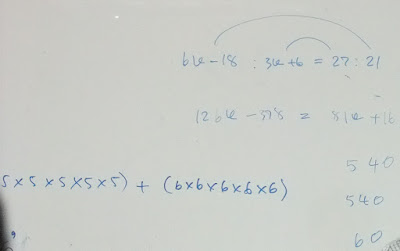 6k-18 : 3k+6 = 27 : 21
126k - 378 = 81k + 16
5 40
5×5×5×5×5) + (6×6×6×6×6)
540
60